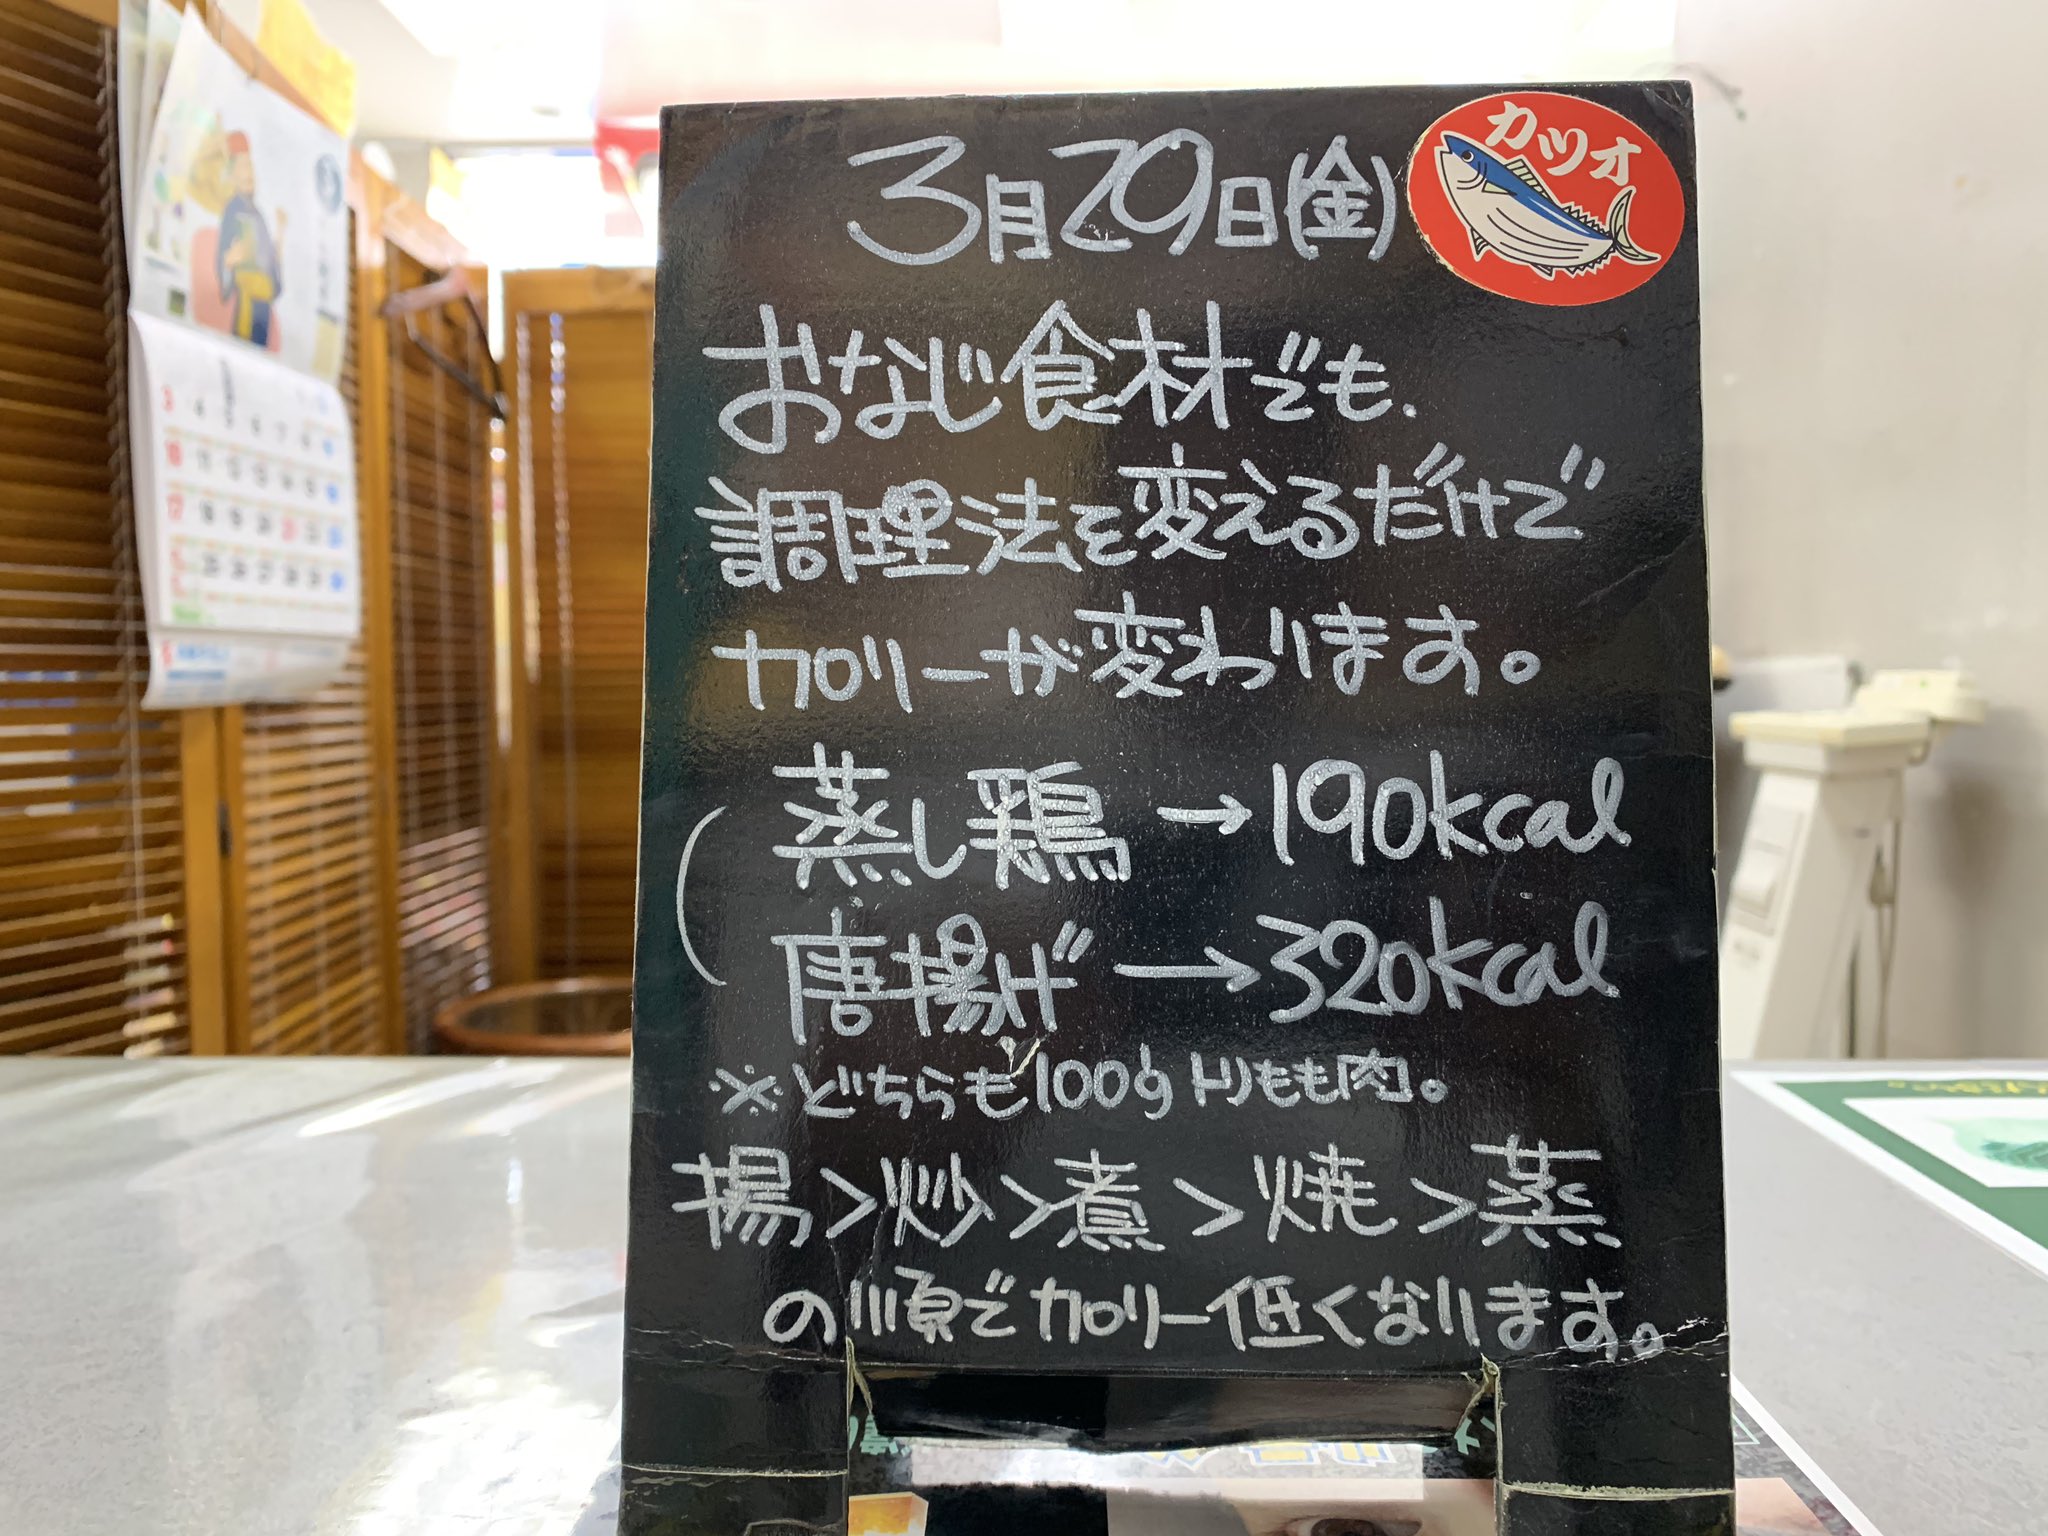 3月29日(金)
カツオ
おなじ食材でも、
調理法を変えるだけで
カロリーが変わります。
蒸し鶏→190kcal
唐揚げ→320kcal
※どちらも100gトリもも肉。
揚>炒>煮>焼>蒸
の順でカロリー低くなります。